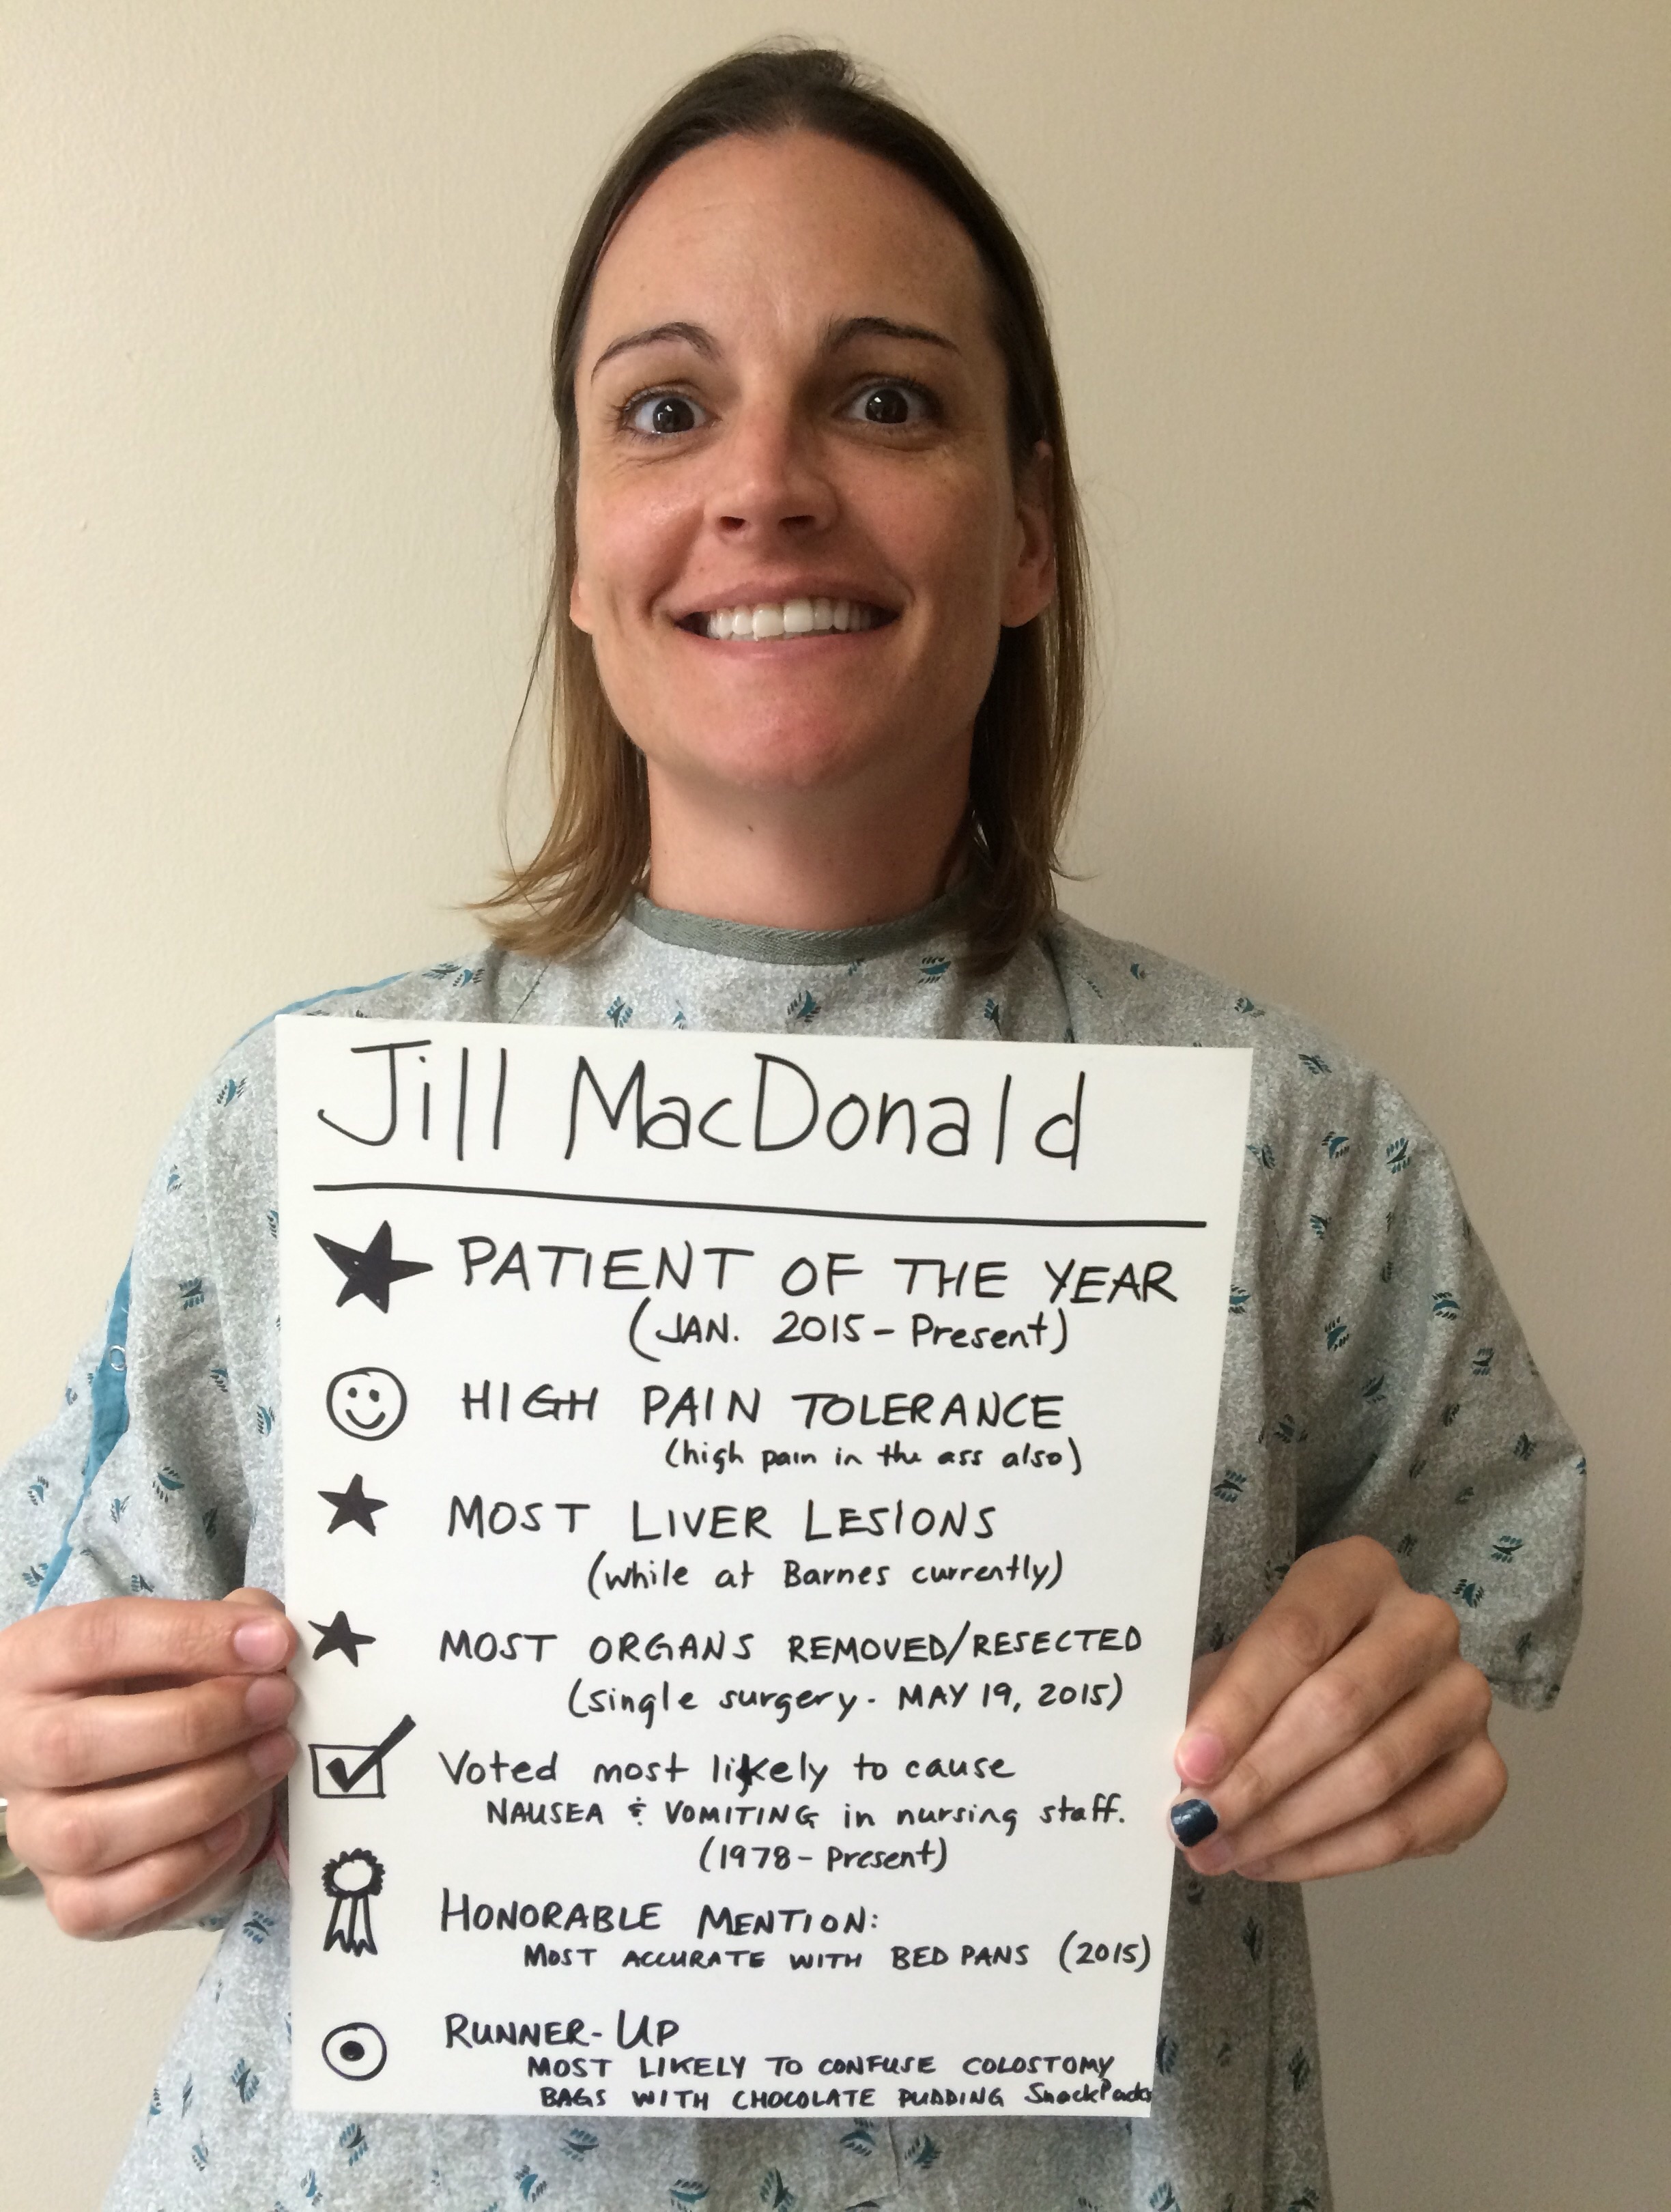 Jill MacDonald
PATIENT OF THE YEAR
(JAN. 2015 - Present)
HIGH PAIN TOLERANCE
(high pain in the ass also)
MOST LIVER LESIONS
(while at Barnes currently)
MOST ORGANS REMOVED/RESECTED
(single surgery - MAY 19, 2015)
Voted most likely to cause
NAUSEA & VOMITING in nursing staff.
(1978 - Present)
HONORABLE MENTION:
MOST ACCURATE WITH BED PANS (2015)
RUNNER-UP
MOST LIKELY TO CONFUSE COLOSTOMY
BAGS WITH CHOCOLATE PUDDING SnackPacks